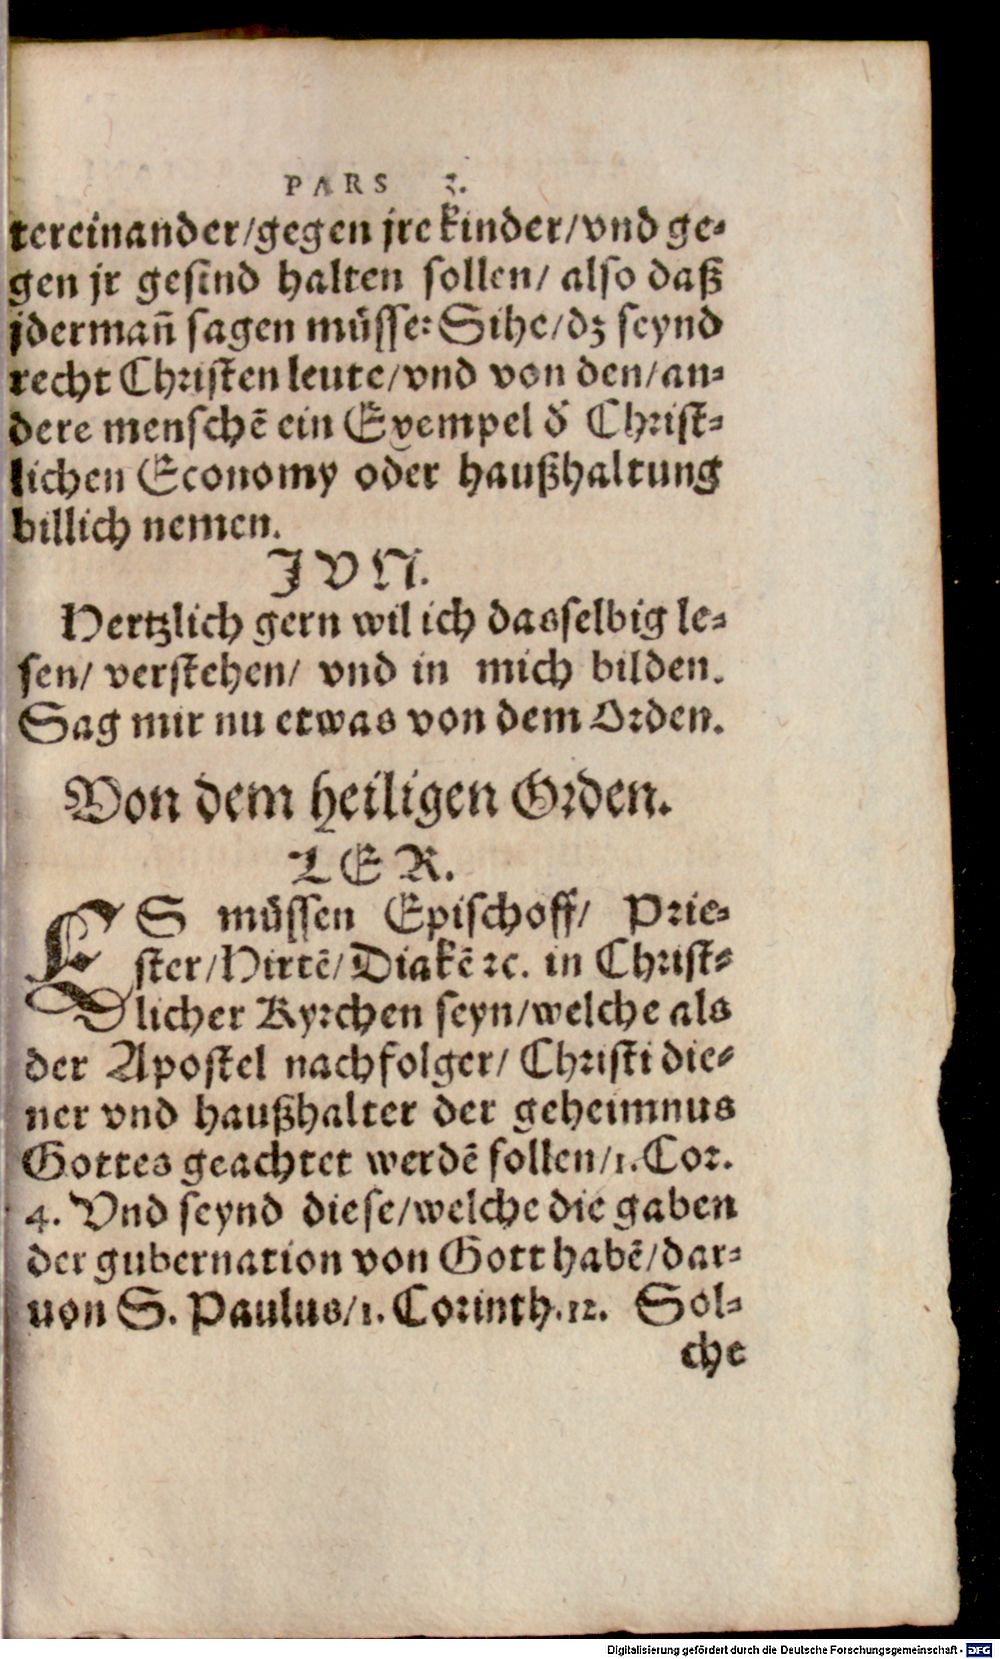 PARS 3.
tereinander/gegen jre kinder/vnd ge-
gen jr gesind halten sollen/ also daß
jdermañ sagen müsse: Sihe/dz seynd
recht Christen leute/vnd von den/an-
dere menschē ein Exempel d̄ Christ-
lichen Economy oder haußhaltung
billich nemen.
JVN.
Hertzlich gern wil ich dasselbig le-
sen/ verstehen/ vnd in mich bilden.
Sag mir nu etwas von dem Orden.
Von dem heiligen Orden.
LER.
ES müssen Epischoff/ Prie-
ster/Hirtē/Diakē ꝛc. in Christ-
licher Kyrchen seyn/welche als
der Apostel nachfolger/ Christi die-
ner vnd haußhalter der geheimnus
Gottes geachtet werdē sollen/1.Cor.
4. Vnd seynd diese/welche die gaben
der gubernation von Gott habē/dar-
uon S. Paulus/1. Corinth.12. Sol-
che
Digitalisierung gefördert durch die Deutsche Forschungsgemeinschaft - DFG